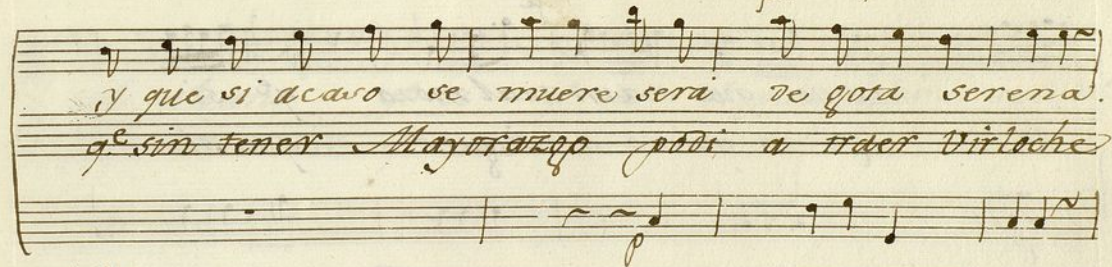 y que si acaso se muere sera de gota serena.
q.e sin tener Mayorazgo podi a traer Virloche
p